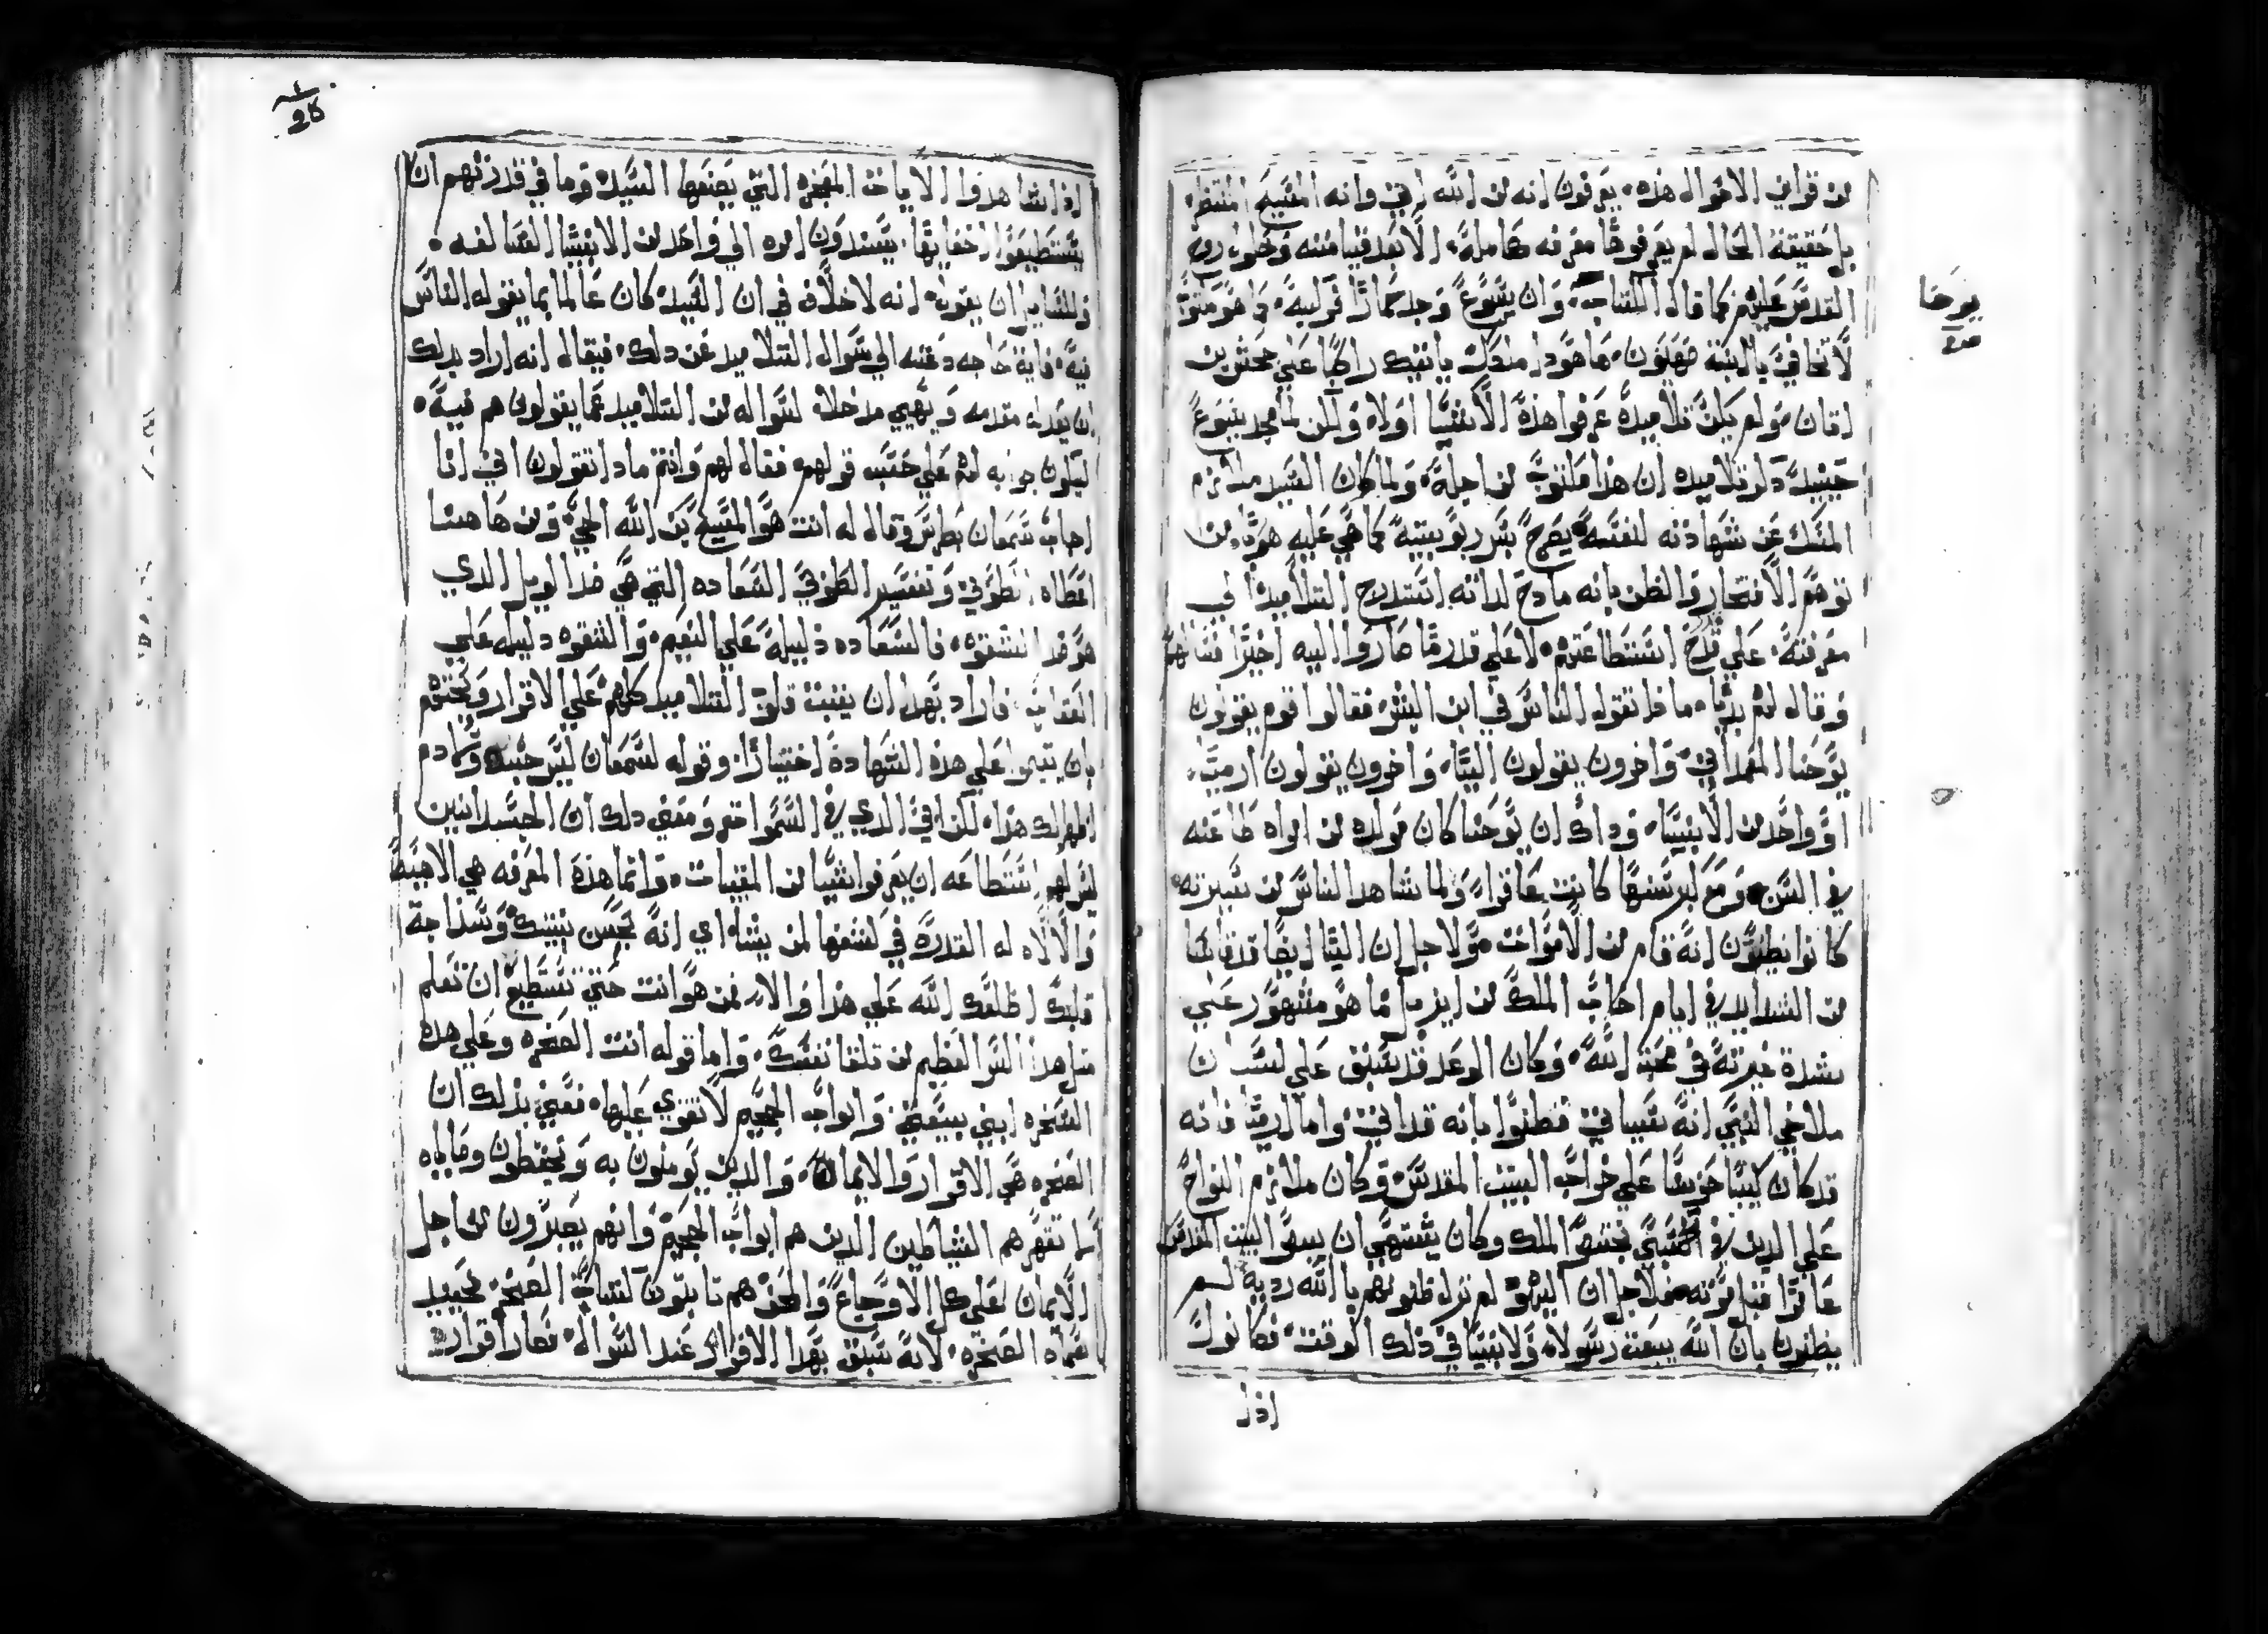 من قواني الاقوال هذه. يعرفون انه من الله اتي وانه المسيح المنتظر.
بل حقيقة الحال لم يعرفوها معرفه كامله. الا بعد قيامته وحلول روح
القدس عليهم كما قال الكتاب. وان يسوع وجد حمارًا فركبه. كما هو مكتوب
يوحنا
لا تخافي يا ابنة صهيون. ها هودا ملكك ياتيك راكبًا علي جحش بن
اتان. ولم يكن تلاميده عرفوا هذه الاشيا اولا. ولكن لما مجد يسوع
حينيد دكر تلاميده ان هذا مكتوب من اجله. ولما كان السيد ملازم
المسك عن شهادته لنفسه. يصرح بسر ربوبيته كما هي عليه هربًا من
توضع الافتخار والظن بانه مادح لداته استدرج التلاميد الي
معرفته. علي قدر استطاعتهم. لا علي قدر ما صاروا اليه اخيرًا فسالهم
وقال لهم بديًا. مادا تقول الناس في ابن البشر فقالوا قوم يقولون
يوحنا المعمداني. واخرون يقولون اليا. واخرون يقولون ارميا.
او واحد من الانبيا. وداك ان يوحنا كان مولده من امراه طاعنه
في السن. ومع كبر سنها كانت عاقرا. ولما شاهد الناس من سيرته
كانوا يظنون انه قام من الاموات. ولاجل ان اليا ايضًا قد قاسا
من الشدايد في ايام احاب الملك من ايزبل ما هو مشهور علي
شدة غيرته في محبة الله. وكان الوعد قد سبق علي لسان
ملاخي النبي انه سياتي فظنوا بانه قد اتي. واما ارميا فانه
قد كان كيبًا حزينًا علي خراب البيت المقدس. وكان ملازم النواح
علي الدين في السبي بختنصر الملك وكان يشتهي ان يبنوا البيت المقدس
عاجلًا قبل موته. فلاجل ان اليهود لم تزل ظنونهم بالله رديه لم
يظنون بان الله يبعث رسولا. ولا نبيًا في ذلك الوقت. فكانوا
اذا
اذا شاهدوا الايات المعجزه التي يصنعها السيد. وما في قدرتهم ان
يستطيعوا اخفايها. يسندون امره الي واحد من الانبيا السالفه.
وللسايل ان يقول. انه لا خلاف في ان السيد كان عالما بما يقوله الناس
فيه. فاية حاجه دعته الي سوال التلاميد عن دلك. فيقال انه اراد بدلك
ان يقدم مقدمه ويهيي مدخلا لسواله من التلاميد عما يقولون هم فيه.
ليكون جوابه لهم علي حسب قولهم. فقال لهم وانتم مادا تقولون اني انا
اجاب سمعان بطرس وقال له انت هو المسيح بن الله الحي. ومن هاهنا
اعطاه الطوبي. وتفسير الطوبي السعاده التي هي ضد الويل الدي
هو ضد الشقوه. فالسعاده دليله علي النعيم. والشقوه دليله علي
العداب. فاراد بهدا ان يثبت قلوب التلاميد كلهم علي الاقرار ويحتهم
بان يتبتوا علي هذه الشهادة اختيارًا. وقوله لسمعان ليس جسد ودم
اظهر لك هذا. لكن ابي الدي في السموات. ومعني دلك ان الجسدانيين
ليس لهم استطاعه ان يعرفوا شيًا من المغيبات. وانما هذه المعرفه هي
والالاه له القدرة في كشفها لمن يشا. اي انه بحسن نيتك وسذاجة
قلبك اطلعك الله علي هذا والا. فمن هو انت حتي تستطيع ان تعلم
مثل هذا السر العظيم من تلقا نفسك. واما قوله انت الصخره وعلي هده
الصخره ابني بيعتي. وابواب الجحيم لا تقوي عليها. فعني بذلك ان
الصخره هي الاقرار والايمان. والدين يومنون به ويحفظون وصاياه
لا تقهرهم الشياطين الدين هم ابواب الجحيم. وانهم يصبرون من اجل
الايمان لعلي كل الاوجاع والمحن هم تابتون كتبات الصخر. فحينيد
سماه الصخره. لانه سبق بهدا الاقرار عند السوال. فصار اقراره